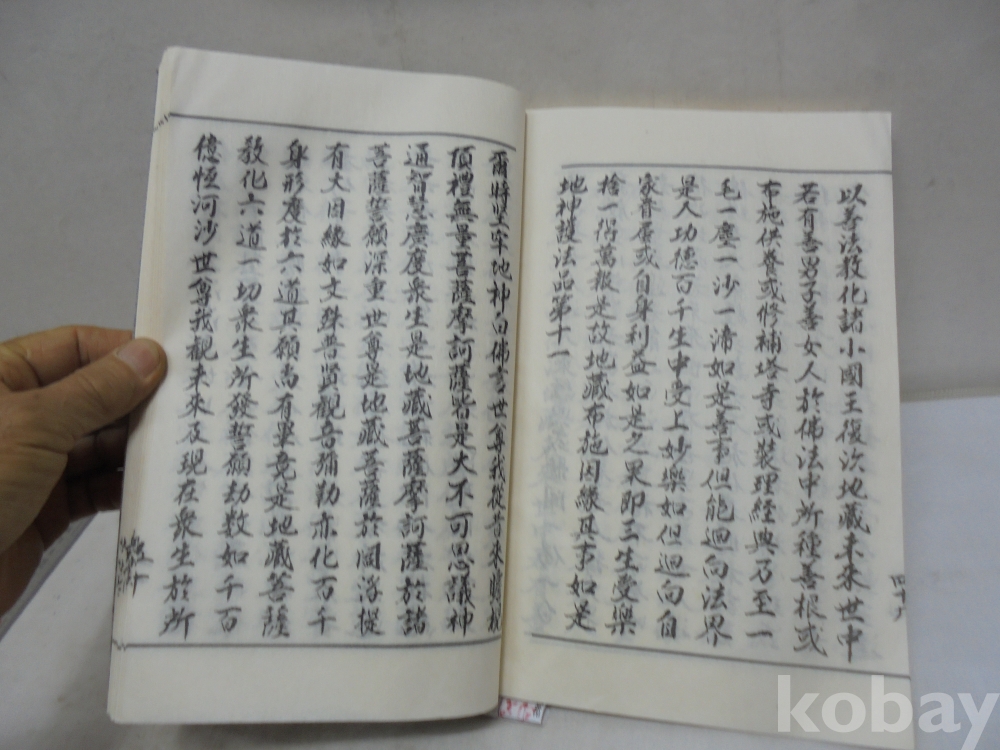 以善法教化諸小國王復次地藏未來世中
若有善男子善女人於佛法中所種善根或
布施供養或修補塔寺或裝理經典乃至一
毛一塵一沙一渧如是善事但能迴向法界
是人功德百千生中受上妙樂如但迴向自
家眷屬或自身利益如是之果即三生受樂
捨一得萬報是故地藏布施因緣其事如是
地神護法品第十一
爾時堅牢地神白佛言世尊我從昔來瞻視
頂禮無量菩薩摩訶薩皆是大不可思議神
通智慧廣度衆生是地藏菩薩摩訶薩於諸
菩薩誓願深重世尊是地藏菩薩於閻浮提
有大因緣如文殊普賢觀音彌勒亦化百千
身形度於六道其願尚有畢竟是地藏菩薩
教化六道一切衆生所發誓願劫數如千百
億恒河沙世尊我觀未來及現在衆生於所
kobay